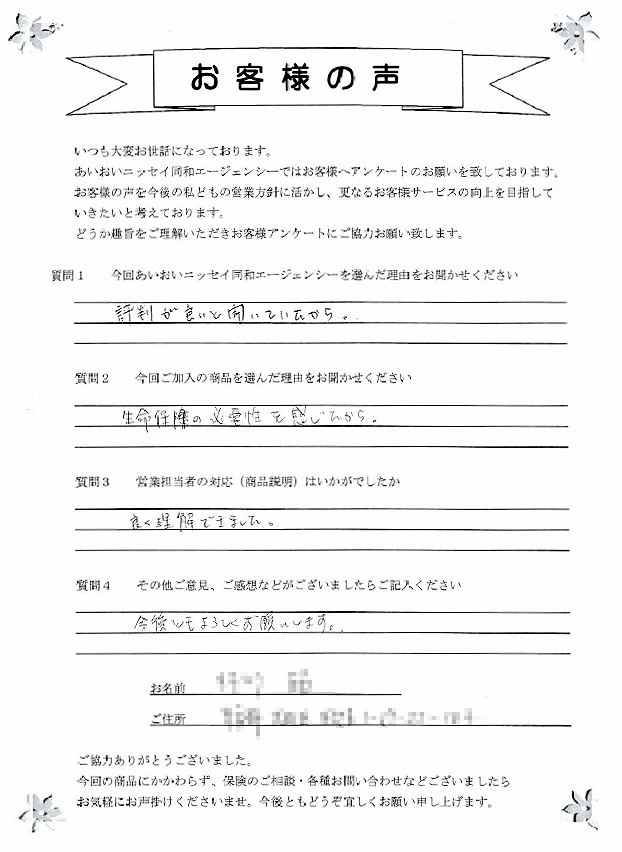 お客様の声
いつも大変お世話になっております。
あいおいニッセイ同和エージェンシーではお客様へアンケートのお願いを致しております。
お客様の声を今後の私どもの営業方針に活かし、更なるお客様サービスの向上を目指して
いきたいと考えております。
どうか趣旨をご理解いただきお客様アンケートにご協力お願い致します。
質問1 今回あいおいニッセイ同和エージェンシーを選んだ理由をお聞かせください
評判が良いと聞いていたから。
質問2 今回ご加入の商品を選んだ理由をお聞かせください
生命保険の必要性を感じたから。
質問3 営業担当者の対応（商品説明）はいかがでしたか
良く理解できました。
質問4 その他ご意見、ご感想などがございましたらご記入ください
今後ともよろしくお願いします。
お名前
ご住所
ご協力ありがとうございました。
今回の商品にかかわらず、保険のご相談・各種お問い合わせなどございましたら
お気軽にお声掛けくださいませ。今後ともどうぞ宜しくお願い申し上げます。